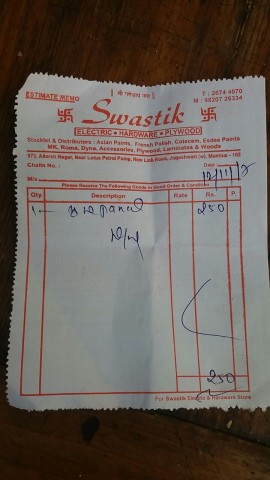 । श्री गणेशाय नमः ।
ESTIMATE MEMO
T : 2674 4070
M : 98207 26334
Swastik
ELECTRIC • HARDWARE • PLYWOOD
Stockist & Distributors : Asian Paints, French Polish, Cotacem, Esdee Paints
MK, Roma, Dyna, Accessories, Plywood, Laminates & Woods
973, Adarsh Nagar, Near Lotus Petrol Pump, New Link Road, Jogeshwari (w), Mumbai - 102
Challn No. :
Date
M/s
Please Receive The Following Goods in Good Order & Condition
Qty. Description Rate Rs. P.
1 250
250
For Swastik Electric & Hardware Store